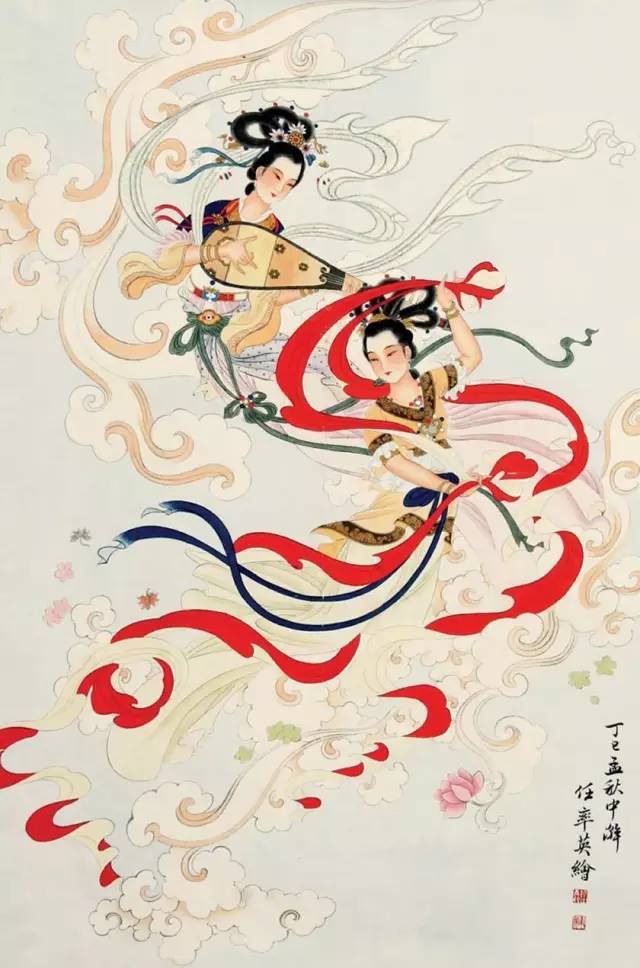 丁巳孟秋中澣
任率英繪